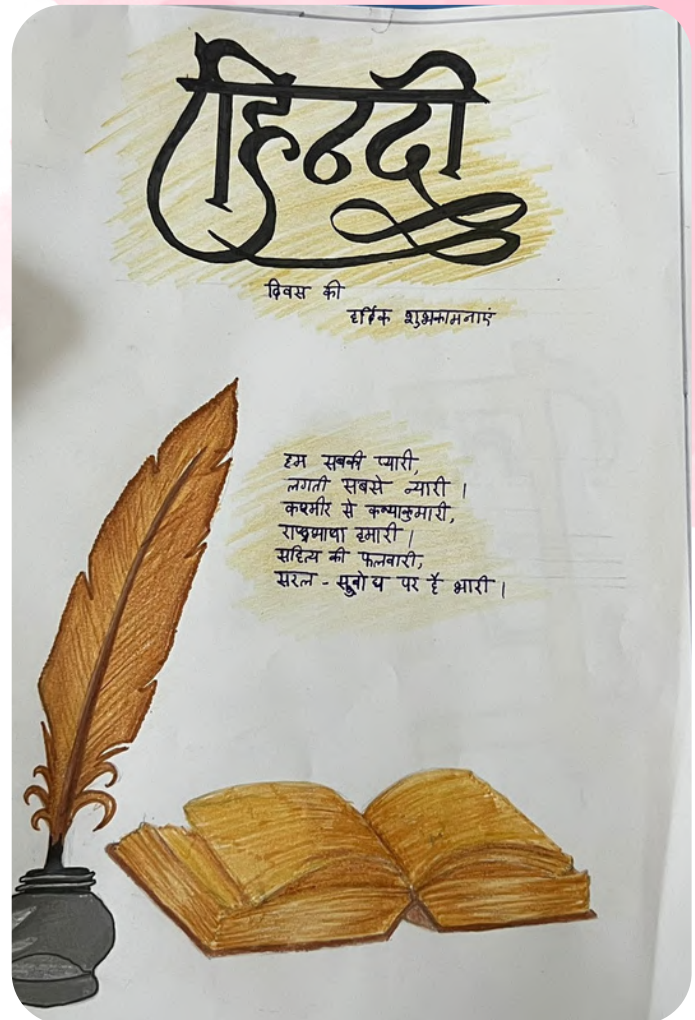 हिन्दी
दिवस की
हार्दिक शुभकामनाएं
हम सबकी प्यारी,
लगती सबसे न्यारी ।
कश्मीर से कन्याकुमारी,
राष्ट्रभाषा हमारी ।
सहित्य की फलवारी,
सरल - सुबोध पर है भारी ।